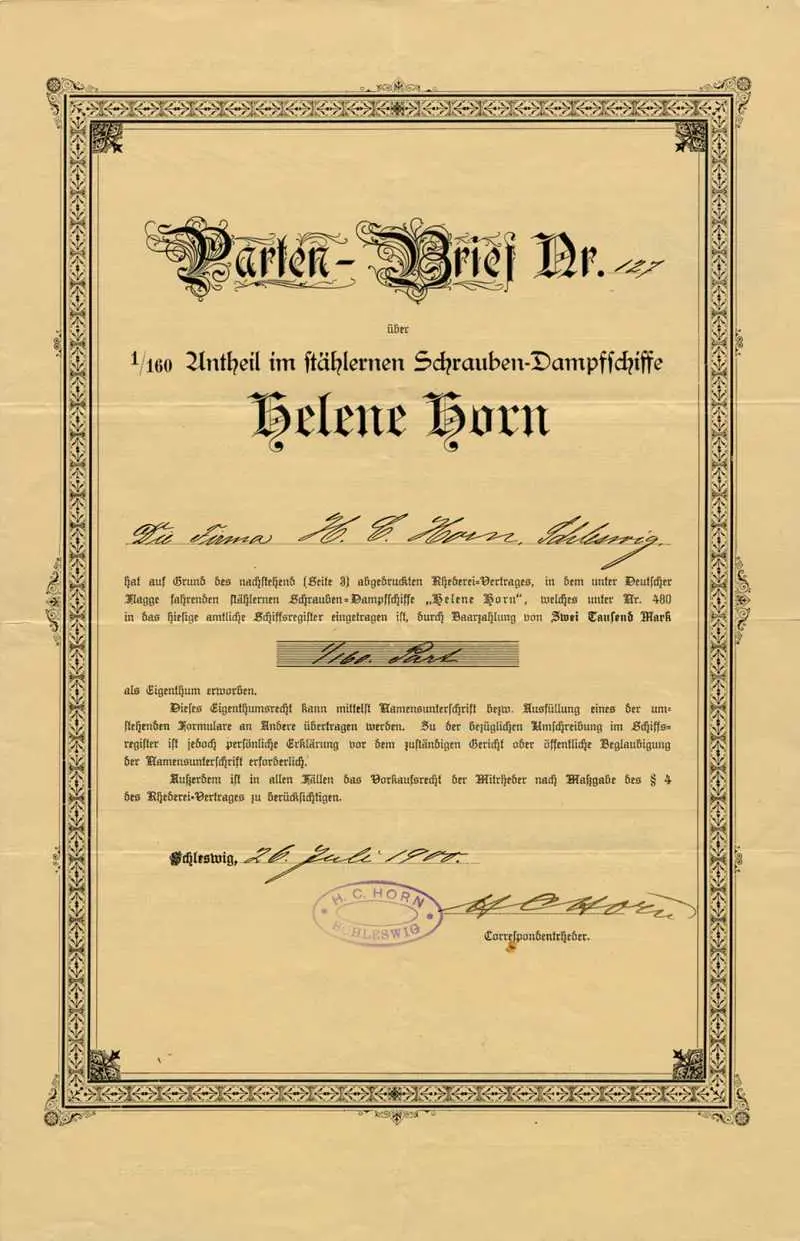 Parten-Brief Nr. 127
über
1/160 Antheil im stählernen Schrauben-Dampfschiffe
Helene Horn
Die Firma H. C. Horn, Schleswig.
hat auf Grund des nachstehend (Seite 3) abgedruckten Rhederei-Vertrages, in dem unter Deutscher
Flagge fahrenden stählernen Schrauben-Dampfschiffe „Helene Horn“, welches unter Nr. 480
in das hiesige amtliche Schiffsregister eingetragen ist, durch Baarzahlung von Zwei Tausend Mark
1/160. Part
als Eigenthum erworben.
Dieses Eigenthumsrecht kann mittelst Namensunterschrift bezw. Ausfüllung eines der um-
stehenden Formulare an Andere übertragen werden. Zu der bezüglichen Umschreibung im Schiffs-
register ist jedoch persönliche Erklärung vor dem zuständigen Gericht oder öffentliche Beglaubigung
der Namensunterschrift erforderlich.
Außerdem ist in allen Fällen das Vorkaufsrecht der Mitrheder nach Maßgabe des § 4
des Rhederei-Vertrages zu berücksichtigen.
Schleswig, 26. Juli 1900.
H. C. HORN
SCHLESWIG
H C Horn
Correspondentrheder.